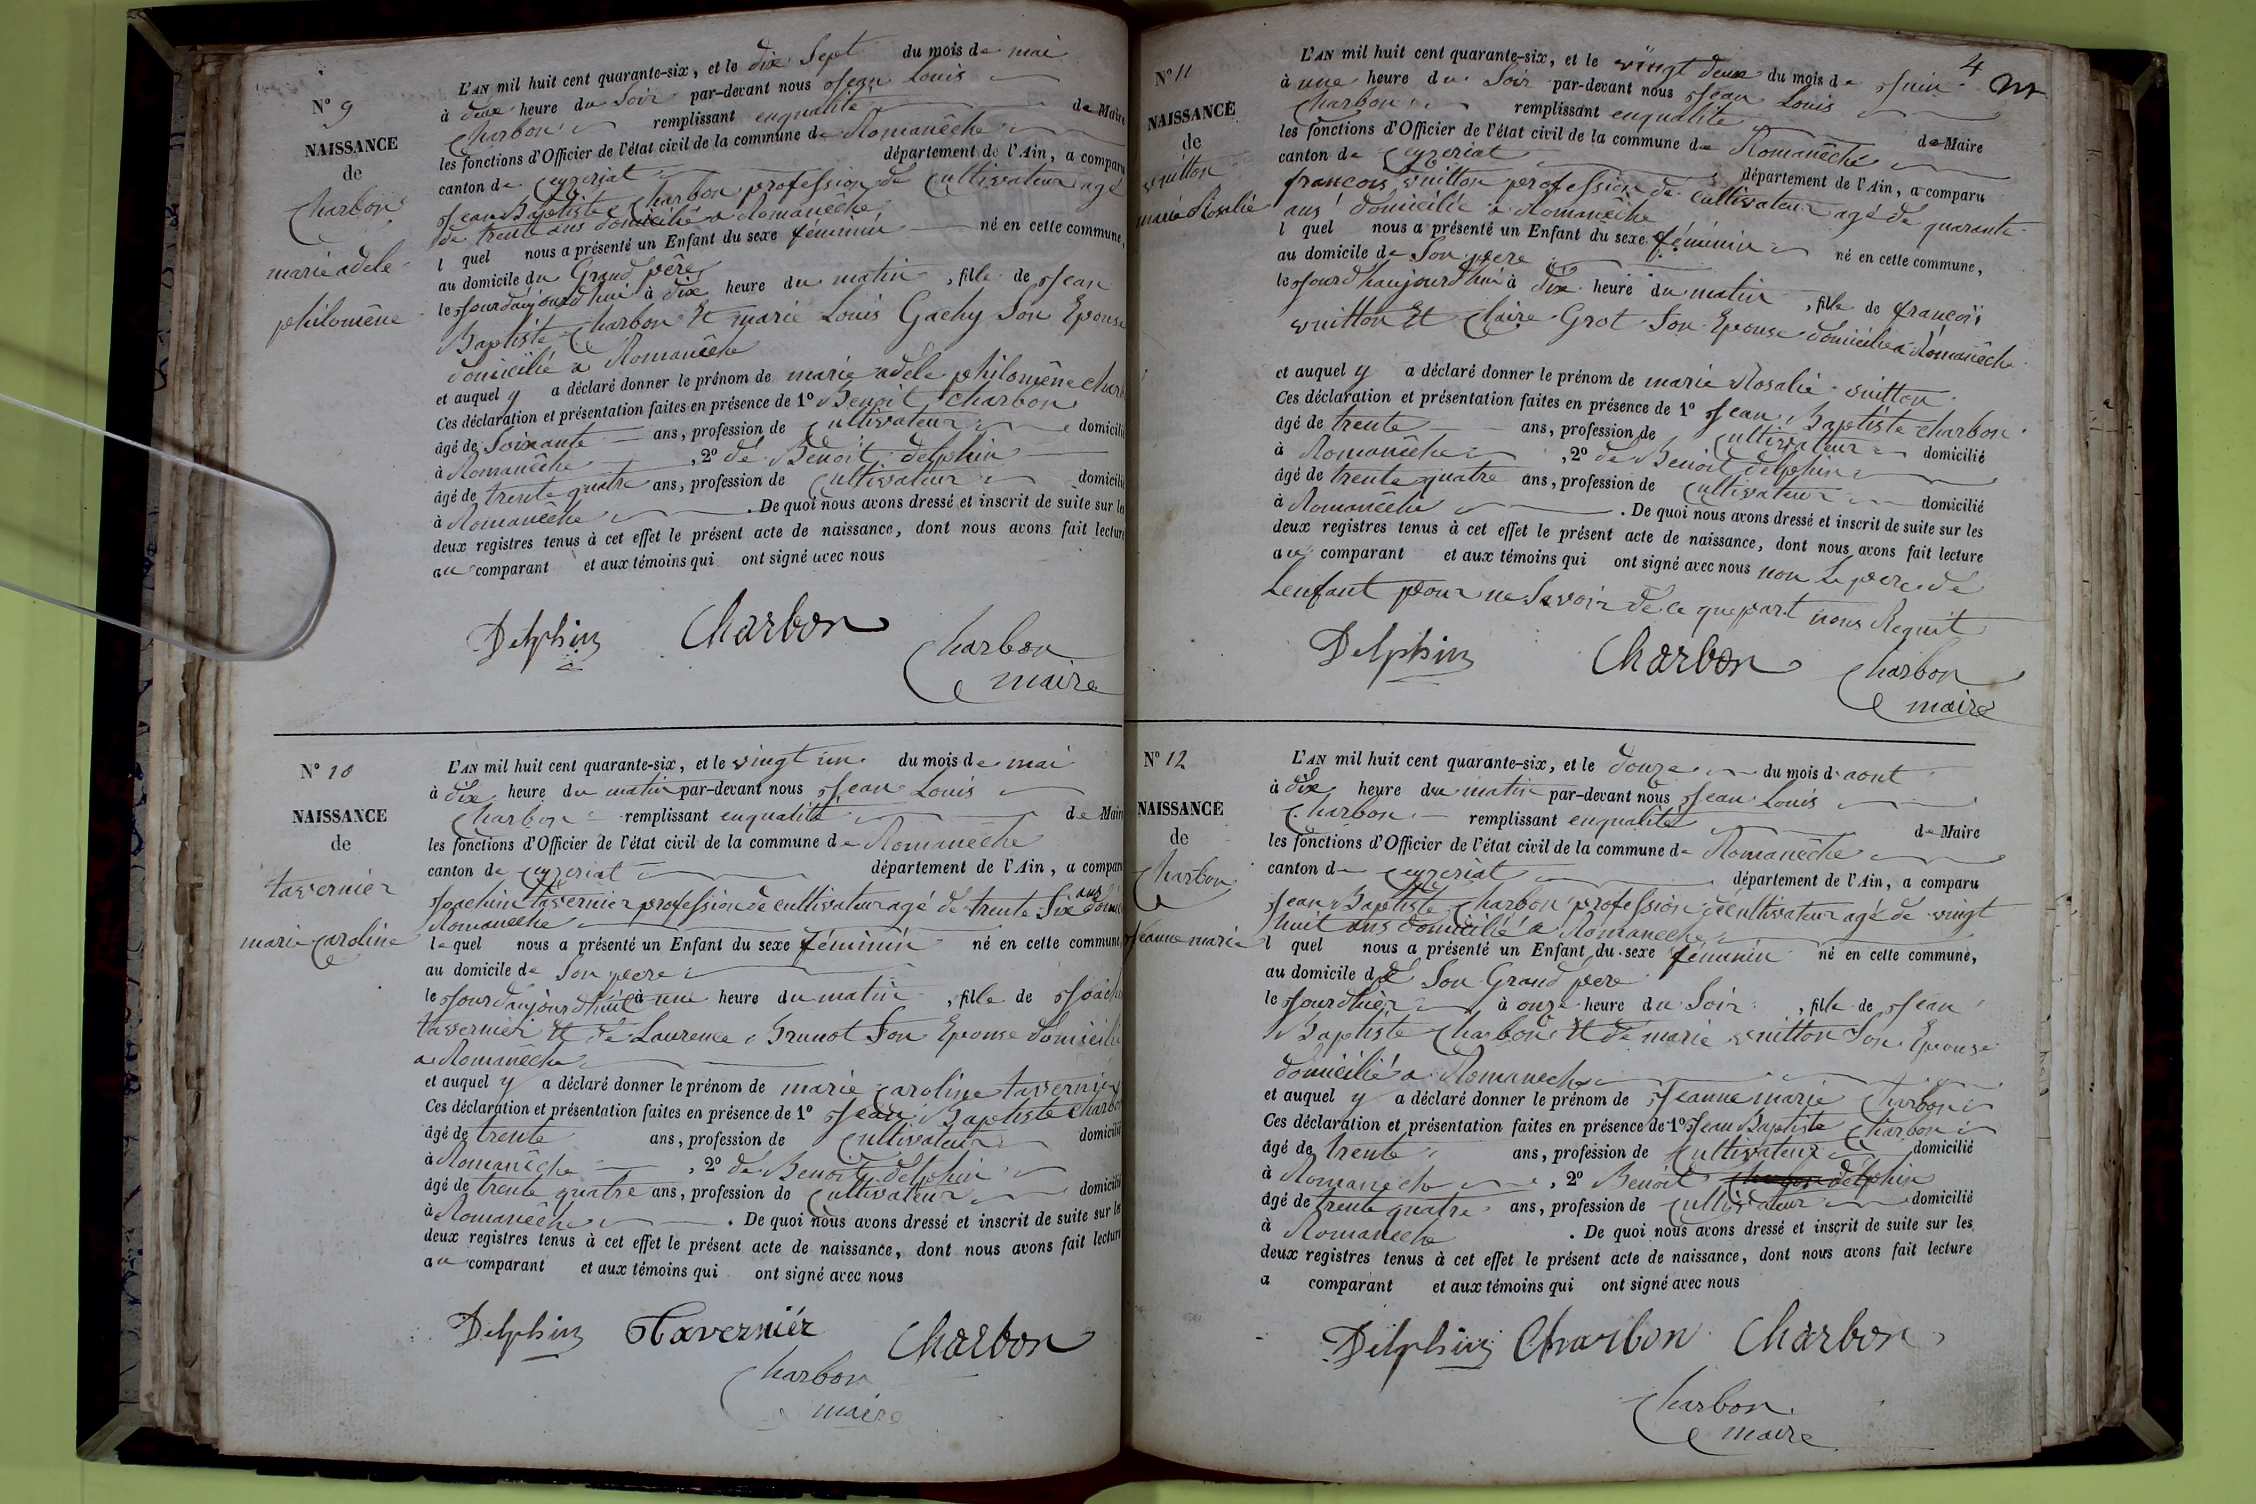 N° 9
NAISSANCE
de
Charbon
marie adele
philomène
L'AN mil huit cent quarante-six, et le dix Sept du mois de mai
à dix heure du Soir par-devant nous Jean Louis
Charbon remplissant enqualité de Maire
les fonctions d'Officier de l'état civil de la commune de Romanêche
canton de Ceyzeriat département de l'Ain, a comparu
Jean Baptiste Charbon profession de Cultivateur agé
de trente ans domicilié a Romanêche
l quel nous a présenté un Enfant du sexe féminin né en cette commune,
au domicile du Grand père
le Jourdaujourdhui à dix heure du matin, fille de Jean
Baptiste Charbon Et marie Louis Gachy Son Epouse
domicilié a Romanêche
et auquel y a déclaré donner le prénom de marie adèle philomène Charb
Ces déclaration et présentation faites en présence de 1° Benoit Charbon
âgé de Soixante ans, profession de Cultivateur domicilié
à Romanêche, 2° de Benoit delphin
âgé de trente quatre ans, profession de Cultivateur domicilié
à Romanêche. De quoi nous avons dressé et inscrit de suite sur les
deux registres tenus à cet effet le présent acte de naissance, dont nous avons fait lecture
au comparant et aux témoins qui ont signé avec nous
Delphin Charbon Charbon
maire
N° 10
NAISSANCE
de
tavernier
marie Caroline
L'AN mil huit cent quarante-six, et le vingt un du mois de mai
à dix heure du matin par-devant nous Jean Louis
Charbon remplissant enqualité de Maire
les fonctions d'Officier de l'état civil de la commune de Romanêche
canton de Ceyzeriat département de l'Ain, a comparu
Joachim tavernier profession de cultivateur agé de trente Six ans domici
Romanêche
lequel nous a présenté un Enfant du sexe féminin né en cette commune,
au domicile de Son pere
le Jourdaujourdhui à une heure du matin, fille de Joachi
tavernier Et de Laurence Brunot Son Epouse domicilié
a Romanêche
et auquel y a déclaré donner le prénom de marie Caroline tavernier
Ces déclaration et présentation faites en présence de 1° Jean Baptiste Charbo
âgé de trente ans, profession de Cultivateur domicilié
à Romanêche, 2° de Benoit delphin
âgé de trente quatre ans, profession de Cultivateur domicilié
à Romanêche. De quoi nous avons dressé et inscrit de suite sur les
deux registres tenus à cet effet le présent acte de naissance, dont nous avons fait lecture
au comparant et aux témoins qui ont signé avec nous
Delphin Tavernier Charbon
Charbon
maire
4
N° 11
NAISSANCE
de
vuitton
marie Rosalie
L'AN mil huit cent quarante-six, et le vingt deux du mois de Juin
à une heure du Soir par-devant nous Jean Louis
Charbon remplissant enqualité de Maire
les fonctions d'Officier de l'état civil de la commune de Romanêche
canton de Ceyzeriat département de l'Ain, a comparu
françois vuitton profession de cultivateur agé de quarante
ans domicilié a Romanêche
l quel nous a présenté un Enfant du sexe féminin né en cette commune,
au domicile de Son pere
le Jourd'haujourdhui à dix heure du matin, fille de françois
vuitton Et Claire Grot Son Epouse domicilié a Romanêche
et auquel y a déclaré donner le prénom de marie Rosalie vuitton
Ces déclaration et présentation faites en présence de 1° Jean Baptiste Charbon
âgé de trente ans, profession de Cultivateur domicilié
à Romanêche, 2° de Benoit delphin
âgé de trente quatre ans, profession de Cultivateur domicilié
à Romanêche. De quoi nous avons dressé et inscrit de suite sur les
deux registres tenus à cet effet le présent acte de naissance, dont nous avons fait lecture
au comparant et aux témoins qui ont signé avec nous non Le pere de
Lenfant pour ne Savoir de ce que part nous Requit
Delphin Charbon Charbon
maire
N° 12
NAISSANCE
de
Charbon
Jeanne marie
L'AN mil huit cent quarante-six, et le douze du mois d'aout
à dix heure du matin par-devant nous Jean Louis
Charbon remplissant enqualité de Maire
les fonctions d'Officier de l'état civil de la commune de Romanêche
canton de Ceyzeriat département de l'Ain, a comparu
Jean Baptiste Charbon profession de cultivateur agé de vingt
huit ans domicilié a Romaneche
l quel nous a présenté un Enfant du sexe féminin né en cette commune,
au domicile de Son Grand pere
le Jourdhier à onze heure du Soir, fille de Jean
Baptiste Charbon Et de marie vuitton Son Epouse
domicilié a Romaneche
et auquel y a déclaré donner le prénom de Jeanne marie Charbon
Ces déclaration et présentation faites en présence de 1° Jean Baptiste Charbon
âgé de trente ans, profession de Cultivateur domicilié
à Romaneche, 2° Benoit delphin
âgé de trente quatre ans, profession de Cultivateur domicilié
à Romaneche. De quoi nous avons dressé et inscrit de suite sur les
deux registres tenus à cet effet le présent acte de naissance, dont nous avons fait lecture
a comparant et aux témoins qui ont signé avec nous
Delphin Charbon Charbon
Charbon
maire